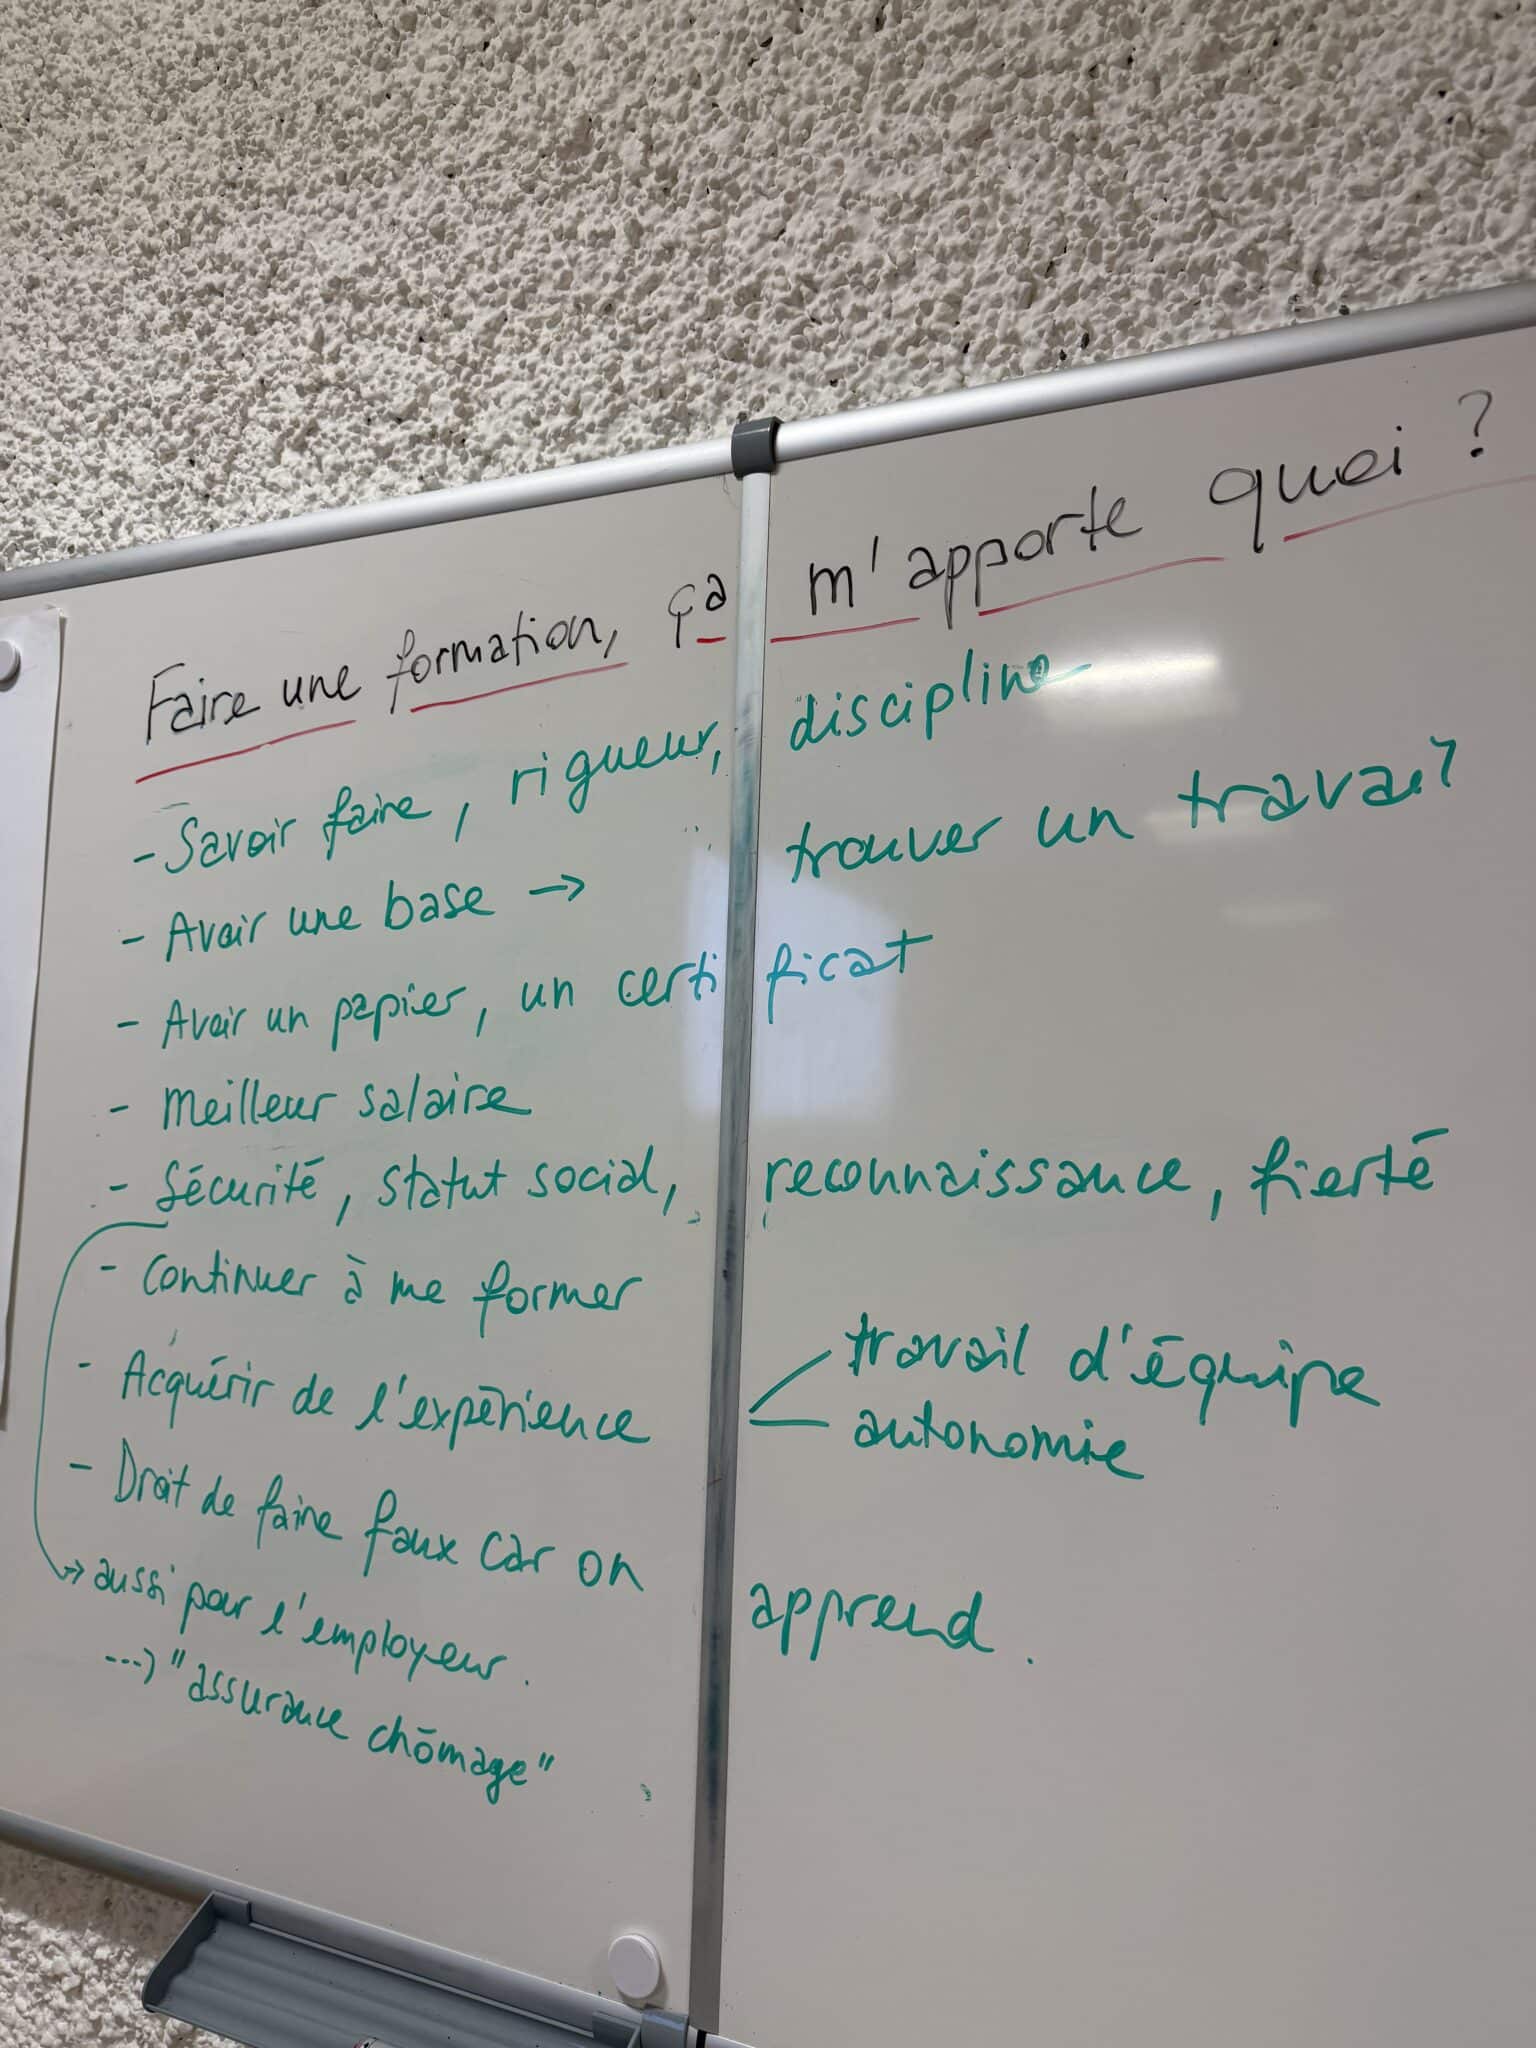 Faire une formation, ça m'apporte quoi ?
- Savoir faire, rigueur, discipline
- Avoir une base → trouver un travail
- Avoir un papier, un certificat
- meilleur salaire
- Sécurité, statut social, reconnaissance, fierté
- Continuer à me former
- Acquérir de l'expérience
travail d'équipe
autonomie
- Droit de faire faux car on apprend.
→ aussi pour l'employeur.
---> "assurance chômage"